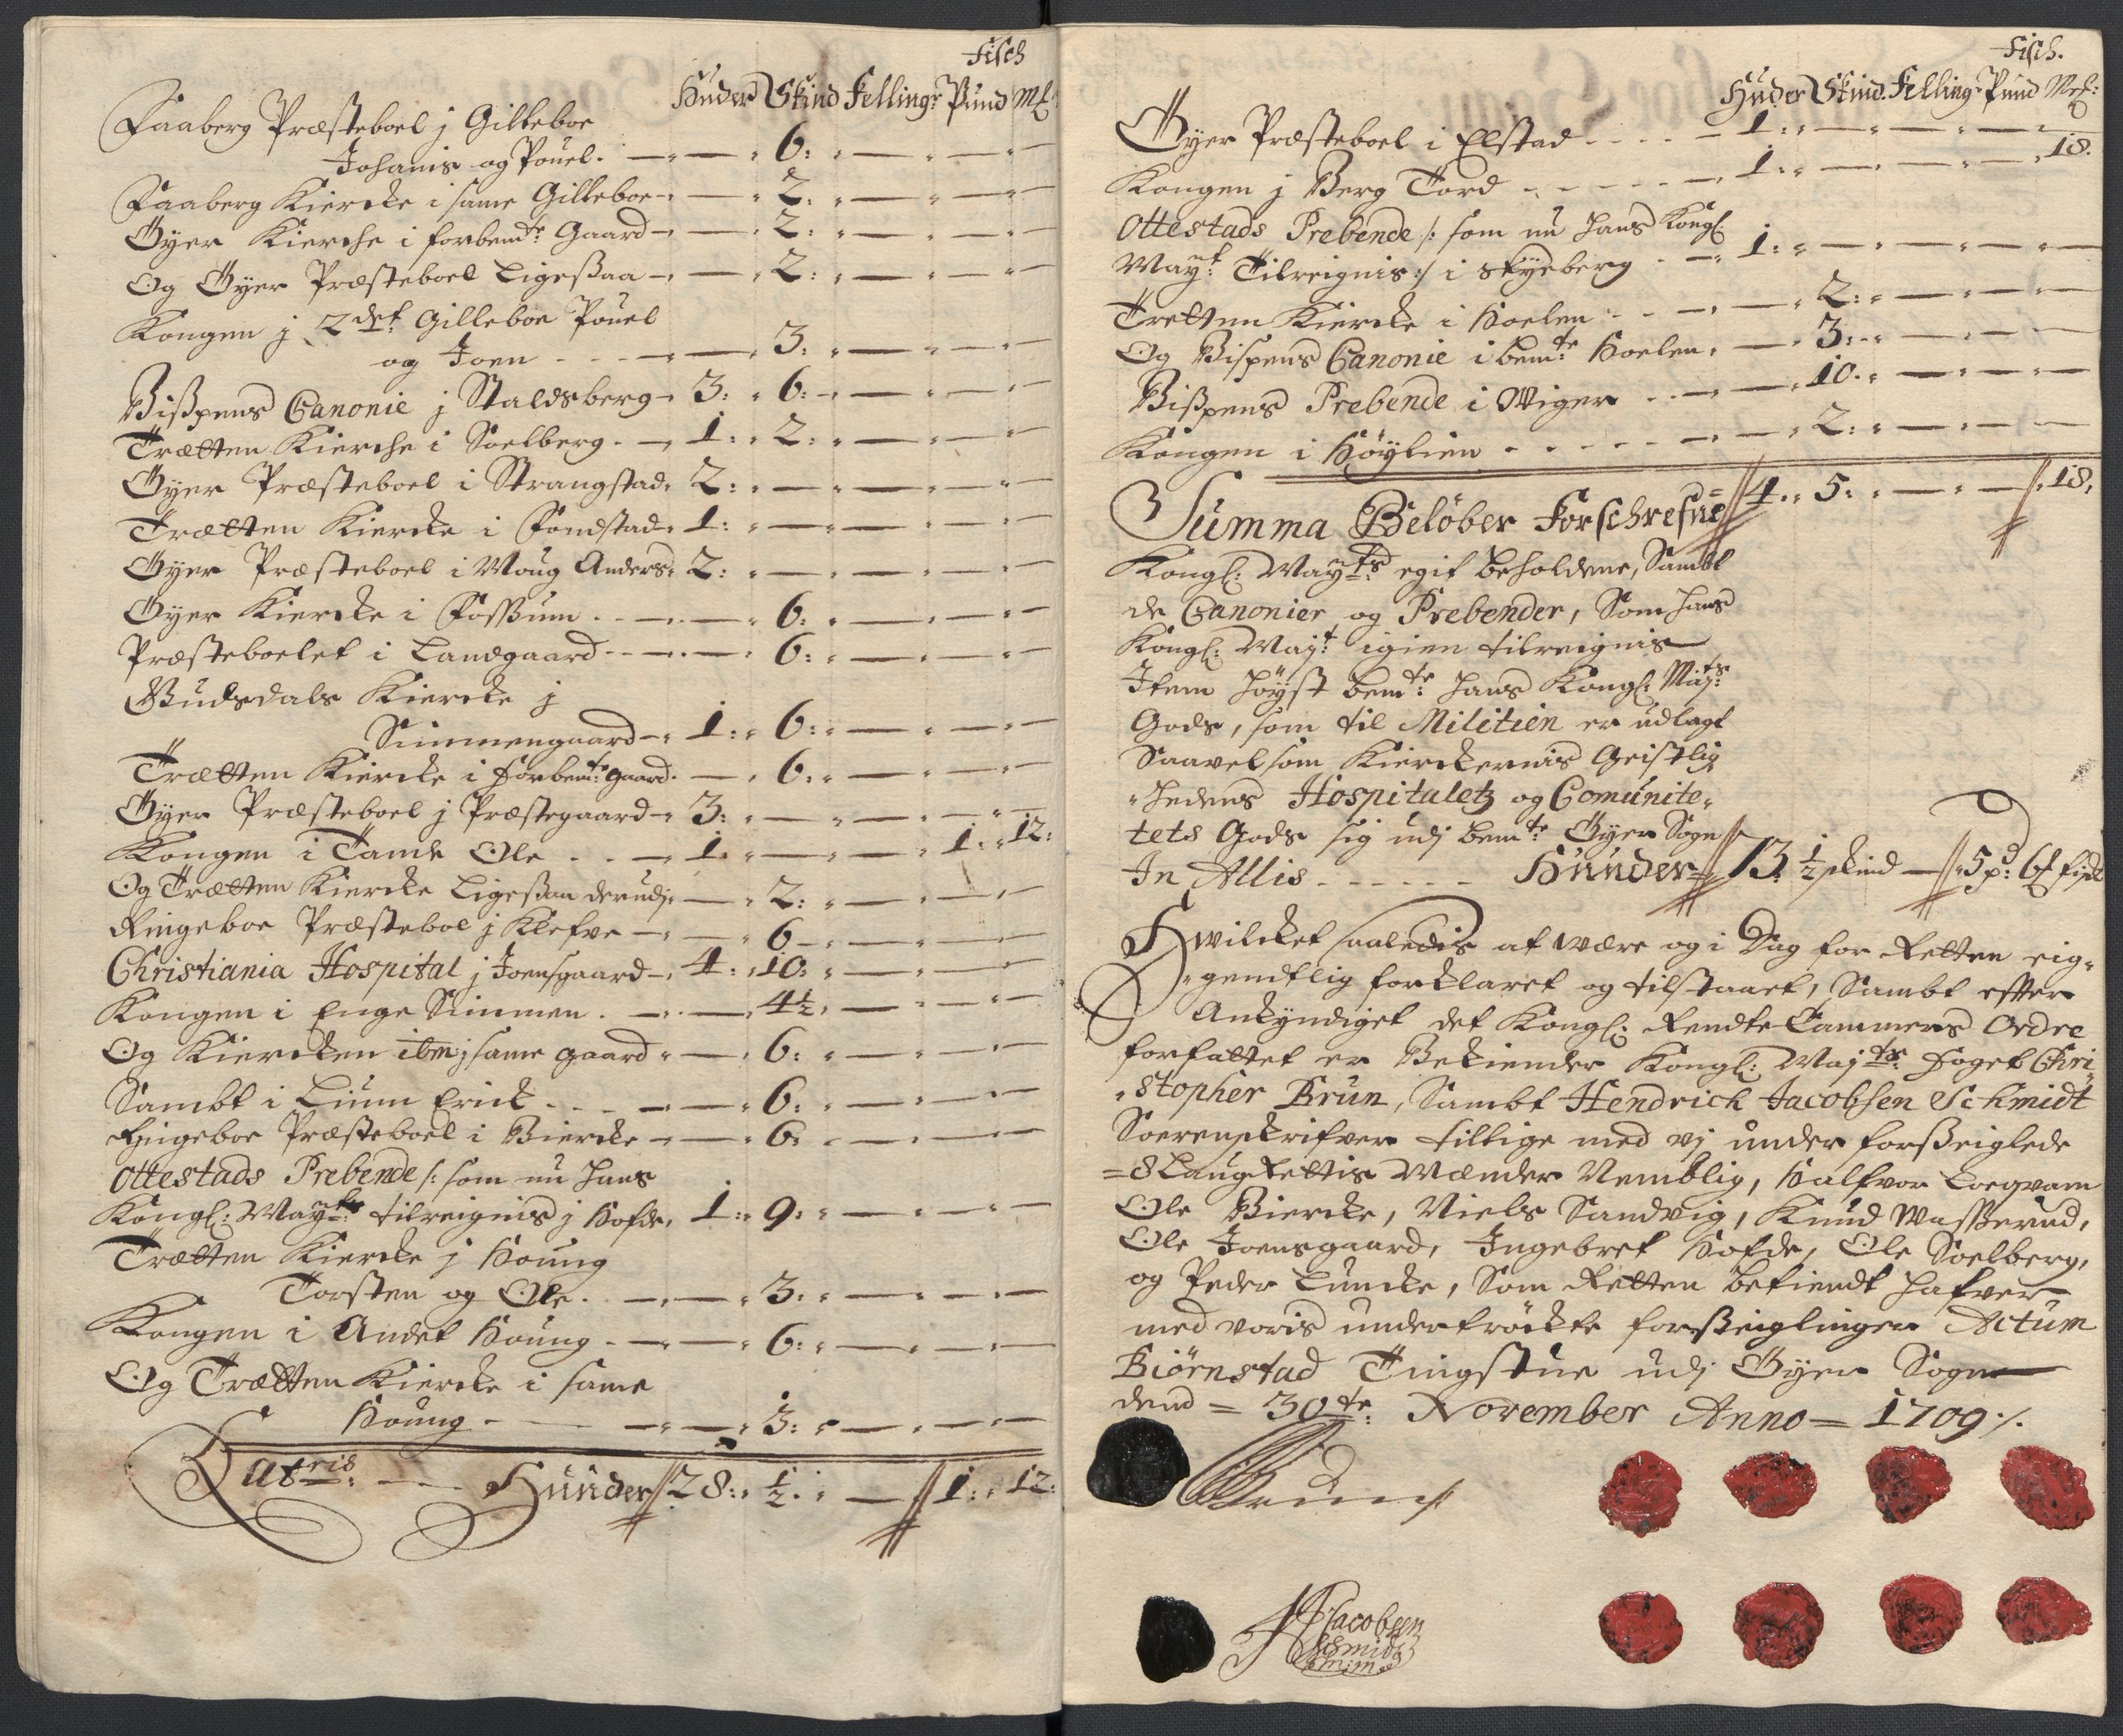 Fisch
Huder Skind Fellingr Pund Mk:
Faaberg Præsteboel j Gilleboe
Johanis og Pouel. — — 6: — — —
Faaberg Kiercke i same Gilleboe — — 2: — — —
Öyer Kierche i forbemte: Gaard — — 2: — — —
Og Öyer Præsteboel Ligeßaa — — 2: — — —
Kongen j 2det: Gilleboe Pouel
og Joen - - - — — 3: — — —
Bißpens Canonie j Staldsberg — 3: 6: — — —
Trætten Kierche i Soelberg. — 1: 2: — — —
Öyer Præsteboel i Strangstad, 2: — — — —
Trætten Kiercke i Fomdstad — 1: — — — —
Öyer Præsteboel i Moug Anders: 2: — — — —
Öyer Kiercke i Foßum . — — 6: — — —
Præsteboelet i Landgaard - - — — 6: — — —
Gudsdals Kiercke j
Simmengaard — 1: 6: — — —
Trætten Kiercke i forbemte: gaard. — 6: — — —
Öyer Præsteboel j Præstegaard — 3: — — — —
Kongen i Tande Ole . . — 1. — — 1: 12:
Og Trætten Kiercke Ligeßaa derudj — 2: — — —
Ringeboe Præsteboel j Klefve — — 6 — — —
Christiania Hospital j Joensgaard — 4: 10: — — —
Kongen i Enge Simmen . — — 4½ — — —
Og Kiercken ibm j same gaard — 6: — — —
Sambt i Lunn Erick . . . — — 6: — — —
Ringeboe Præsteboel i Biercke — — 6: — — —
Ottestads Prebende /: som nu Hans
Kongl: Mayts: tilreignis j Hofde, 1: 9: — — —
Trætten Kiercke j Houng
Torsten og Ole . — — 3: — — —
Kongen i Andet Houng . — — 6: — — —
Og Trætten Kiercke i same
Houng - — — — 3: — — —
Latris: — - - Hunder // 28: ½: — // 1: 12:
Fisch.
Huder Skind. Felling: Pund Mk:
Öyer Præsteboel i Elstad - - - - 1: — — — —
Kongen j Berg Tord - - - - - — 1: — — — 18.
Ottestads Prebende /: som nu Hans Kongl:
Mayt: Tilreignis :/ i Skyeberg . — 1: — — — —
Tretten Kiercke i Hoelen - - — — 2: — — —
Og Bispens Canonie i bemte: Hoelen, — 3: — — —
Bißpens Prebende i Wiger . . — — 10. — — —
Kongen i Höylien - - - - - — — 2: — — —
Summa Belöber Forschrefne // 4: 5: — — // 18,
Kongl: Mayts: egit beholdene, Sambt
de Canonier og Prebender, Som Hans
Kongl: Mayt: igien tilreignis
Item Höyst bemte: Hans Kongl: Mays:
Gods, som til Militien er udlagt
Saavelsom Kierckernis Geistlig
hedens Hospitaletz og Comunite,
tets Gods sig udj bemte: Öyer Sogn
In Allis - - - - - Hunder // 73 ½ skind — // 5 pd: 6 f fisk
Hwilcket saaledis at være og i Dag for Retten eig,
gendtlig forklaret og tilstaaet, Sambt effter
Ankyndiget det Kongl: Rendte Cammers Ordre
forfattet er Bekiender Kongl: Mayts: foget Chri,
stopher Brun, Sambt Hendrich Jacobsen Schmidt
Sorenskrifver tillige med vj under forßeiglede
=8 Laugrettis Mænder Nemblig, Halfvor Loegvam
Ole Biercke, Niels Sandvig, Knud Waßerud,
Ole Joensgaard, Ingebret Hofde, Ole Soelberg,
og Peder Luncke, Som Retten betiendt hafver
med voris undertröckte forßeiglinger Actum
Biörnstad Tingstue udj Öyer Sogn
dend = 30te: November Anno = 1709 ./.
Brun
H Jacobsen
Schmidt